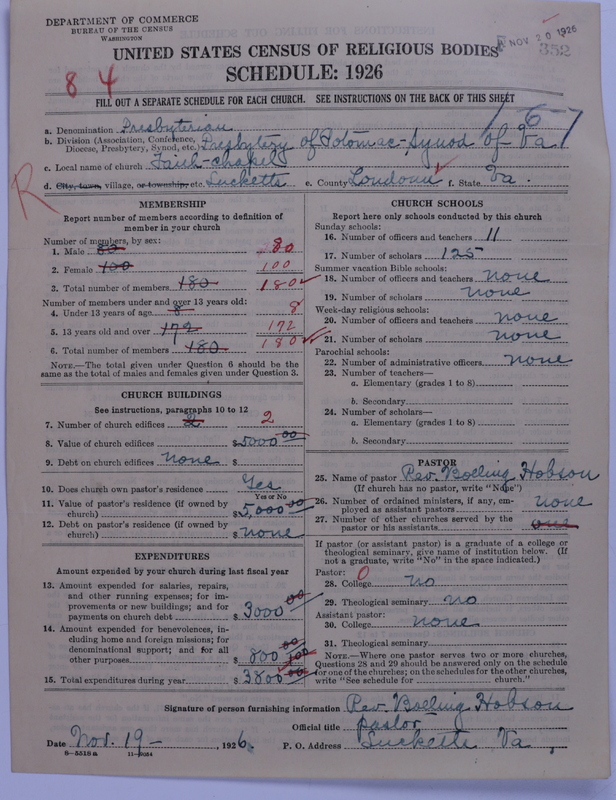 DEPARTMENT OF COMMERCE
BUREAU OF THE CENSUS
WASHINGTON
NOV 20 1926
352
UNITED STATES CENSUS OF RELIGIOUS BODIES
SCHEDULE: 1926
8 4
FILL OUT A SEPARATE SCHEDULE FOR EACH CHURCH. SEE INSTRUCTIONS ON THE BACK OF THIS SHEET
167
a. Denomination Presbyterian
b. Division (Association, Conference, Diocese, Presbytery, Synod, etc.) Presbytery of Potomac-Synod of Va.
c. Local name of church Faith-chapel
d. City, town, village, or township, etc. Lucketts e. County Loudoun f. State Va.
R
MEMBERSHIP
Report number of members according to definition of
member in your church
Number of members, by sex:
1. Male 80 80
2. Female 100 100
3. Total number of members 180 180
Number of members under and over 13 years old:
4. Under 13 years of age 8 8
5. 13 years old and over 172 172
6. Total number of members 180 180
NOTE.—The total given under Question 6 should be
same as the total of males and females given under Question 3.
CHURCH BUILDINGS
See instructions, paragraphs 10 to 12
7. Number of church edifices 2 2
8. Value of church edifices $5000 00
9. Debt on church edifices none $
10. Does church own pastor's residence Yes
Yes or No
11. Value of pastor's residence (if owned by
church) $5,000 00
12. Debt on pastor's residence (if owned by
church) $ none
EXPENDITURES
Amount expended by your church during last fiscal year
13. Amount expended for salaries, repairs,
and other running expenses; for im-
provements or new buildings; and for
payments on church debt $ 3000 00
14. Amount expended for benevolences, in-
cluding home and foreign missions; for
denominational support; and for all
other purposes $ 800 00
15. Total expenditures during year $ 3800 00
CHURCH SCHOOLS
Report here only schools conducted by this church
Sunday schools:
16. Number of officers and teachers 11
17. Number of scholars 125
Summer vacation Bible schools:
18. Number of officers and teachers none
19. Number of scholars none
Week-day religious schools:
20. Number of officers and teachers none
21. Number of scholars none
Parochial schools:
22. Number of administrative officers none
23. Number of teachers—
a. Elementary (grades 1 to 8)
b. Secondary
24. Number of scholars—
a. Elementary (grades 1 to 8)
b. Secondary
PASTOR
25. Name of pastor Rev. Boelling Hobson
(If church has no pastor, write "None")
26. Number of ordained ministers, if any, em-
ployed as assistant pastors none
27. Number of other churches served by the
pastor or his assistants one
If pastor (or assistant pastor) is a graduate of a college or
theological seminary, give name of institution below. (If
not a graduate, write "No" in the space indicated.)
Pastor: 0
28. College no
29. Theological seminary no
Assistant pastor:
30. College none
31. Theological seminary
NOTE.—Where one pastor serves two or more churches,
Questions 28 and 29 should be answered only on the schedule
for one of the churches; on the schedules for the other churches,
write "See schedule for church."
Signature of person furnishing information Rev. Boelling Hobson
Official title pastor
Date Nov. 19- , 1926. P. O. Address Lucketts Va
8-5518a 11-9064